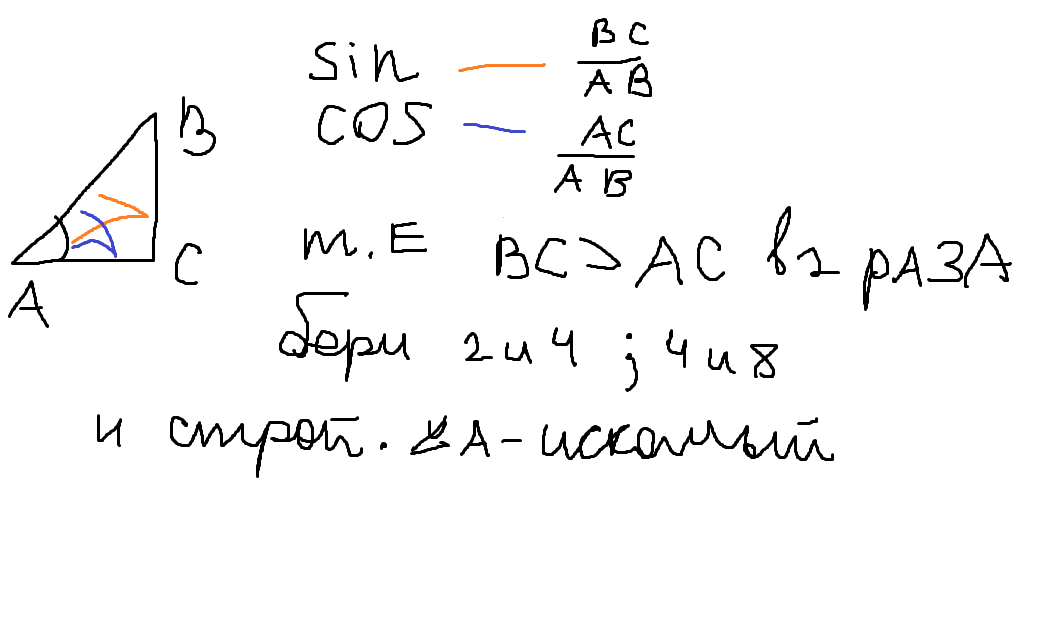 sin — BC / AB
cos — AC / AB
B
C
A
т.Е BC > AC в 2 рАЗА
бери 2 и 4 ; 4 и 8
и строй. ∠A - искомый